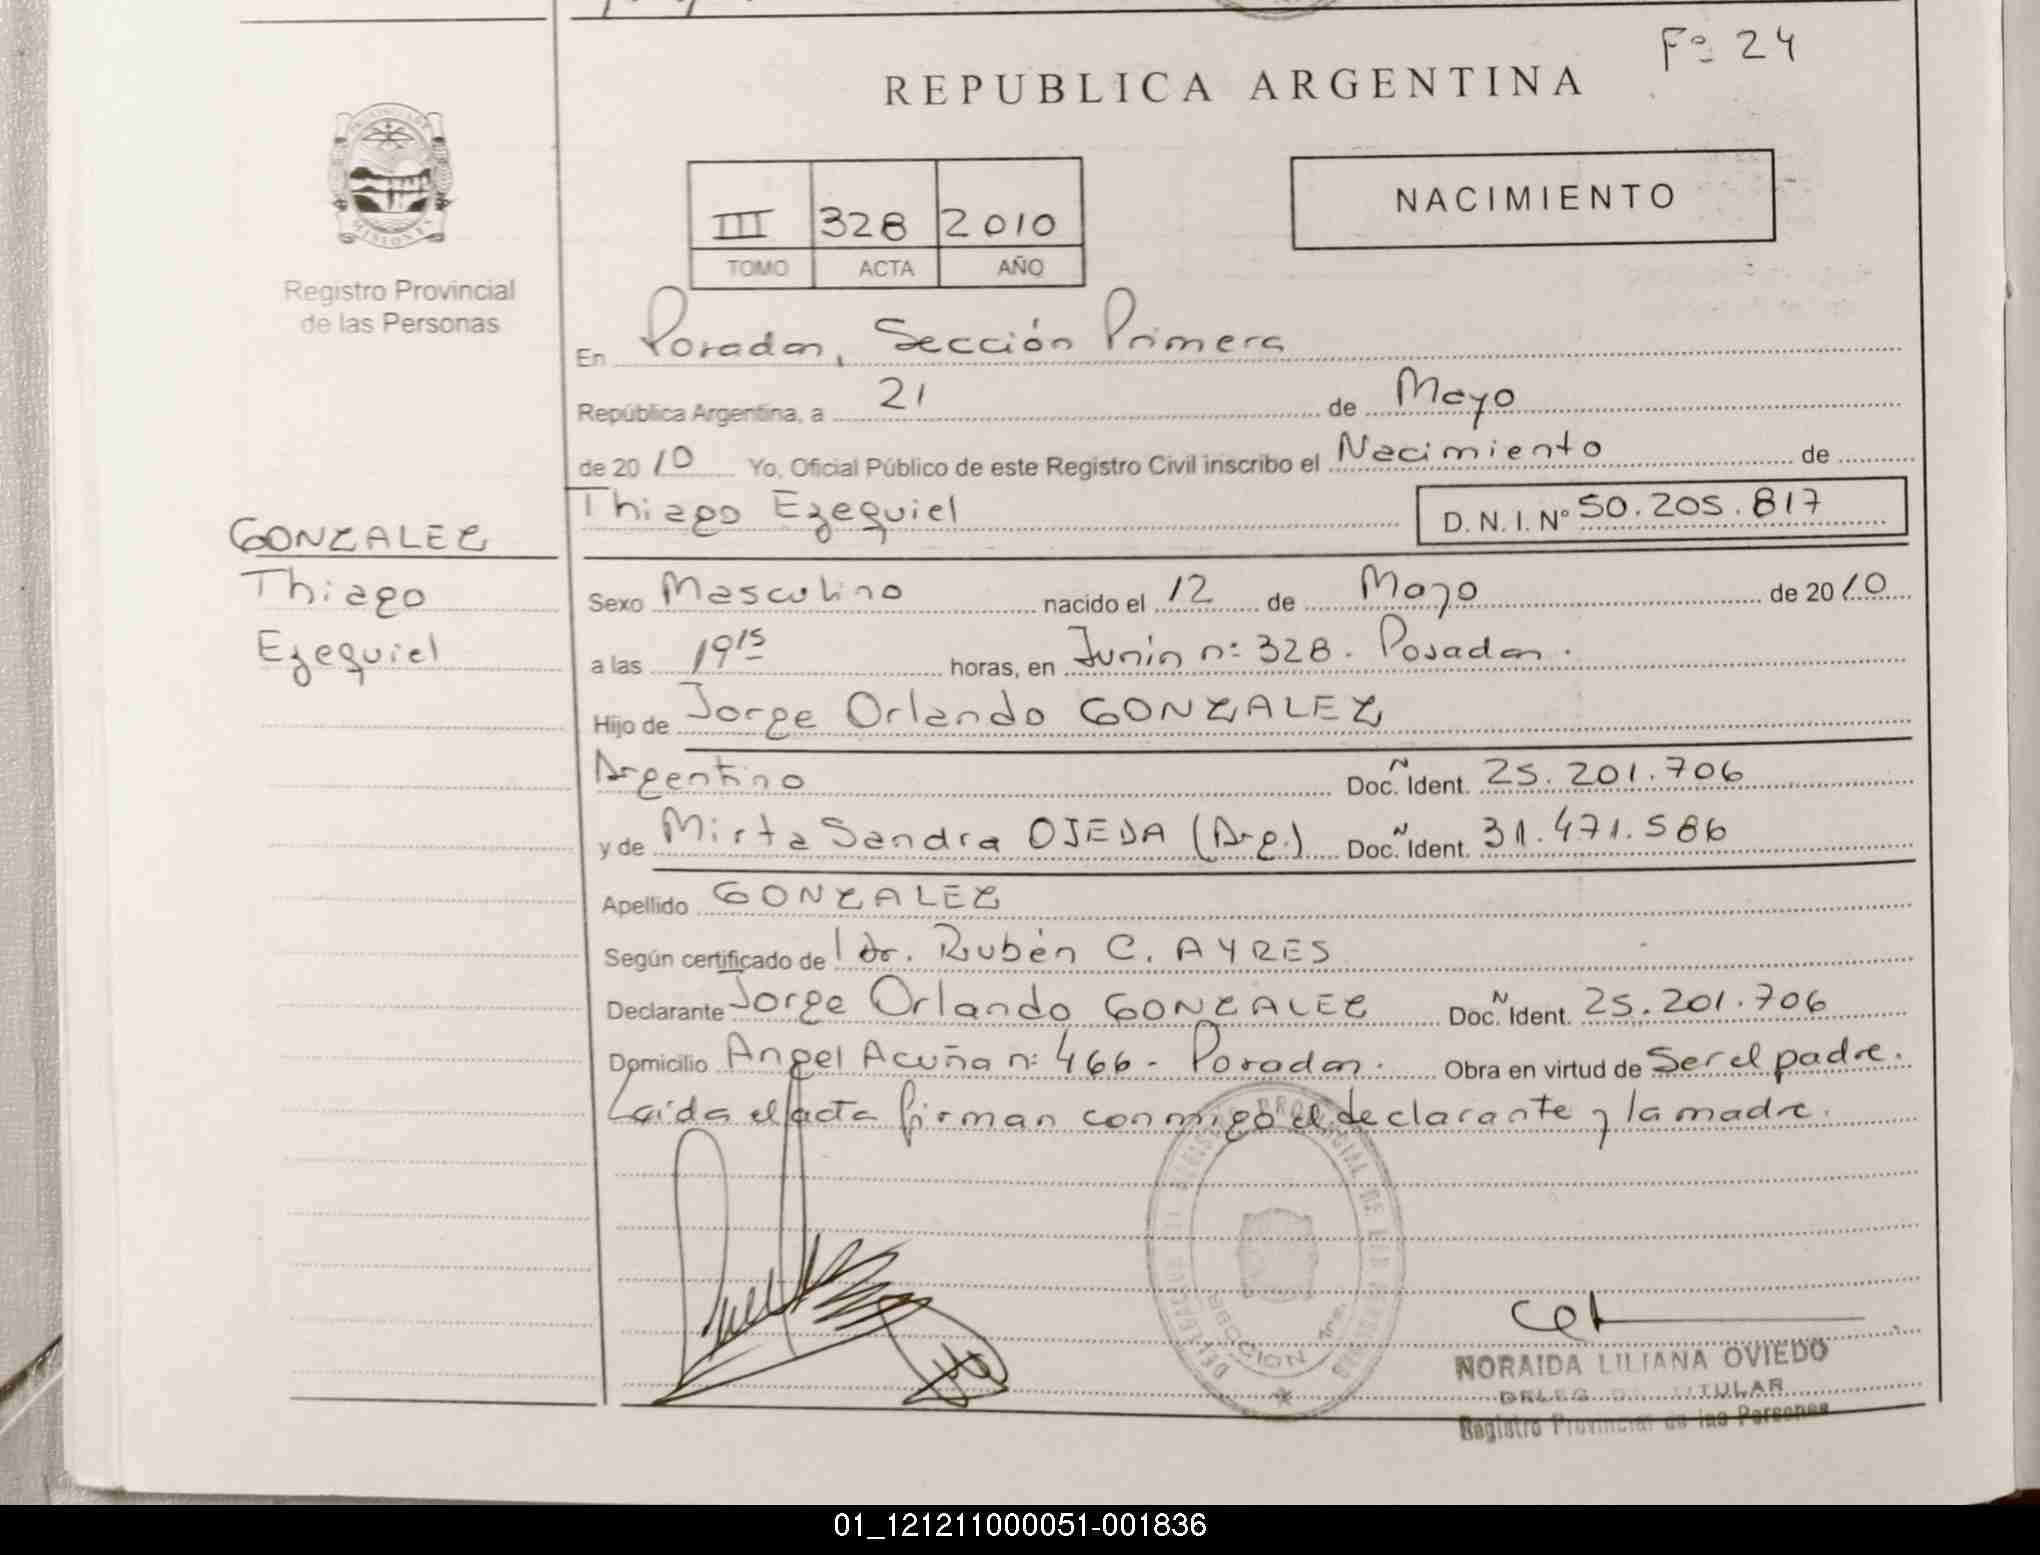 Fº 24
REPUBLICA ARGENTINA
MISIONES
Registro Provincial
de las Personas
III 328 2010
TOMO ACTA AÑO
NACIMIENTO
En Posadas, Sección Primera
República Argentina, a 21 de Mayo
de 2010 Yo, Oficial Público de este Registro Civil inscribo el Nacimiento de
Thiago Ezequiel D. N. I. Nº 50.205.817
GONZALEZ
Thiago
Ezequiel
Sexo Masculino nacido el 12 de Mayo de 2010
a las 19 15 horas, en Junín nº 328. Posadas.
Hijo de Jorge Orlando GONZALEZ
Argentino Doc. Ñ Ident. 25.201.706
y de Mirta Sandra OJEDA (Arg.) Doc. Ñ Ident. 31.471.586
Apellido GONZALEZ
Según certificado de l dr. Rubén C. AYRES
Declarante Jorge Orlando GONZALEZ Doc. N Ident. 25.201.706
Domicilio Angel Acuña nº 466 - Posadas. Obra en virtud de Ser el padre.
Leída el acta firman conmigo el declarante y la madre.
NORAIDA LILIANA OVIEDO
TITULAR
Registro Provincial de las Personas
01_121211000051-001836